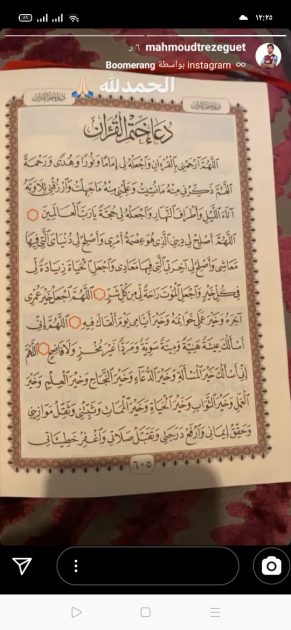 ١٢:٢٥
mahmoudtrezeguet ٦ د
Boomerang بواسطة instagram
الحمدلله 🙏
دعاء ختم القرآن
دعاء ختم القرآن
دُعَاءُ خَتْمِ الْقُرْآنِ
اللَّهُمَّ ارْحَمْنِي بِالْقُرْءَانِ وَاجْعَلْهُ لِي إِمَامًا وَنُورًا وَهُدًى وَرَحْمَةً
اللَّهُمَّ ذَكِّرْنِي مِنْهُ مَا نَسِيتُ وَعَلِّمْنِي مِنْهُ مَا جَهِلْتُ وَارْزُقْنِي تِلَاوَتَهُ
آنَاءَ اللَّيْلِ وَأَطْرَافَ النَّهَارِ وَاجْعَلْهُ لِي حُجَّةً يَا رَبَّ الْعَالَمِينَ
اللَّهُمَّ أَصْلِحْ لِي دِينِي الَّذِي هُوَ عِصْمَةُ أَمْرِي وَأَصْلِحْ لِي دُنْيَايَ الَّتِي فِيهَا
مَعَاشِي وَأَصْلِحْ لِي آخِرَتِي الَّتِي فِيهَا مَعَادِي وَاجْعَلِ الْحَيَاةَ زِيَادَةً لِي
فِي كُلِّ خَيْرٍ وَاجْعَلِ الْمَوْتَ رَاحَةً لِي مِنْ كُلِّ شَرٍّ اللَّهُمَّ اجْعَلْ خَيْرَ عُمْرِي
آخِرَهُ وَخَيْرَ عَمَلِي خَوَاتِمَهُ وَخَيْرَ أَيَّامِي يَوْمَ أَلْقَاكَ فِيهِ اللَّهُمَّ إِنِّي
أَسْأَلُكَ عِيشَةً هَنِيَّةً وَمِيتَةً سَوِيَّةً وَمَرَدًّا غَيْرَ مُخْزٍ وَلَا فَاضِحٍ اللَّهُمَّ
إِنِّي أَسْأَلُكَ خَيْرَ الْمَسْأَلَةِ وَخَيْرَ الدُّعَاءِ وَخَيْرَ النَّجَاحِ وَخَيْرَ الْعِلْمِ وَخَيْرَ
الْعَمَلِ وَخَيْرَ الثَّوَابِ وَخَيْرَ الْحَيَاةِ وَخَيْرَ الْمَمَاتِ وَثَبِّتْنِي وَثَقِّلْ مَوَازِينِي
وَحَقِّقْ إِيمَانِي وَارْفَعْ دَرَجَتِي وَتَقَبَّلْ صَلَاتِي وَاغْفِرْ خَطِيئَاتِي
٦٠٥